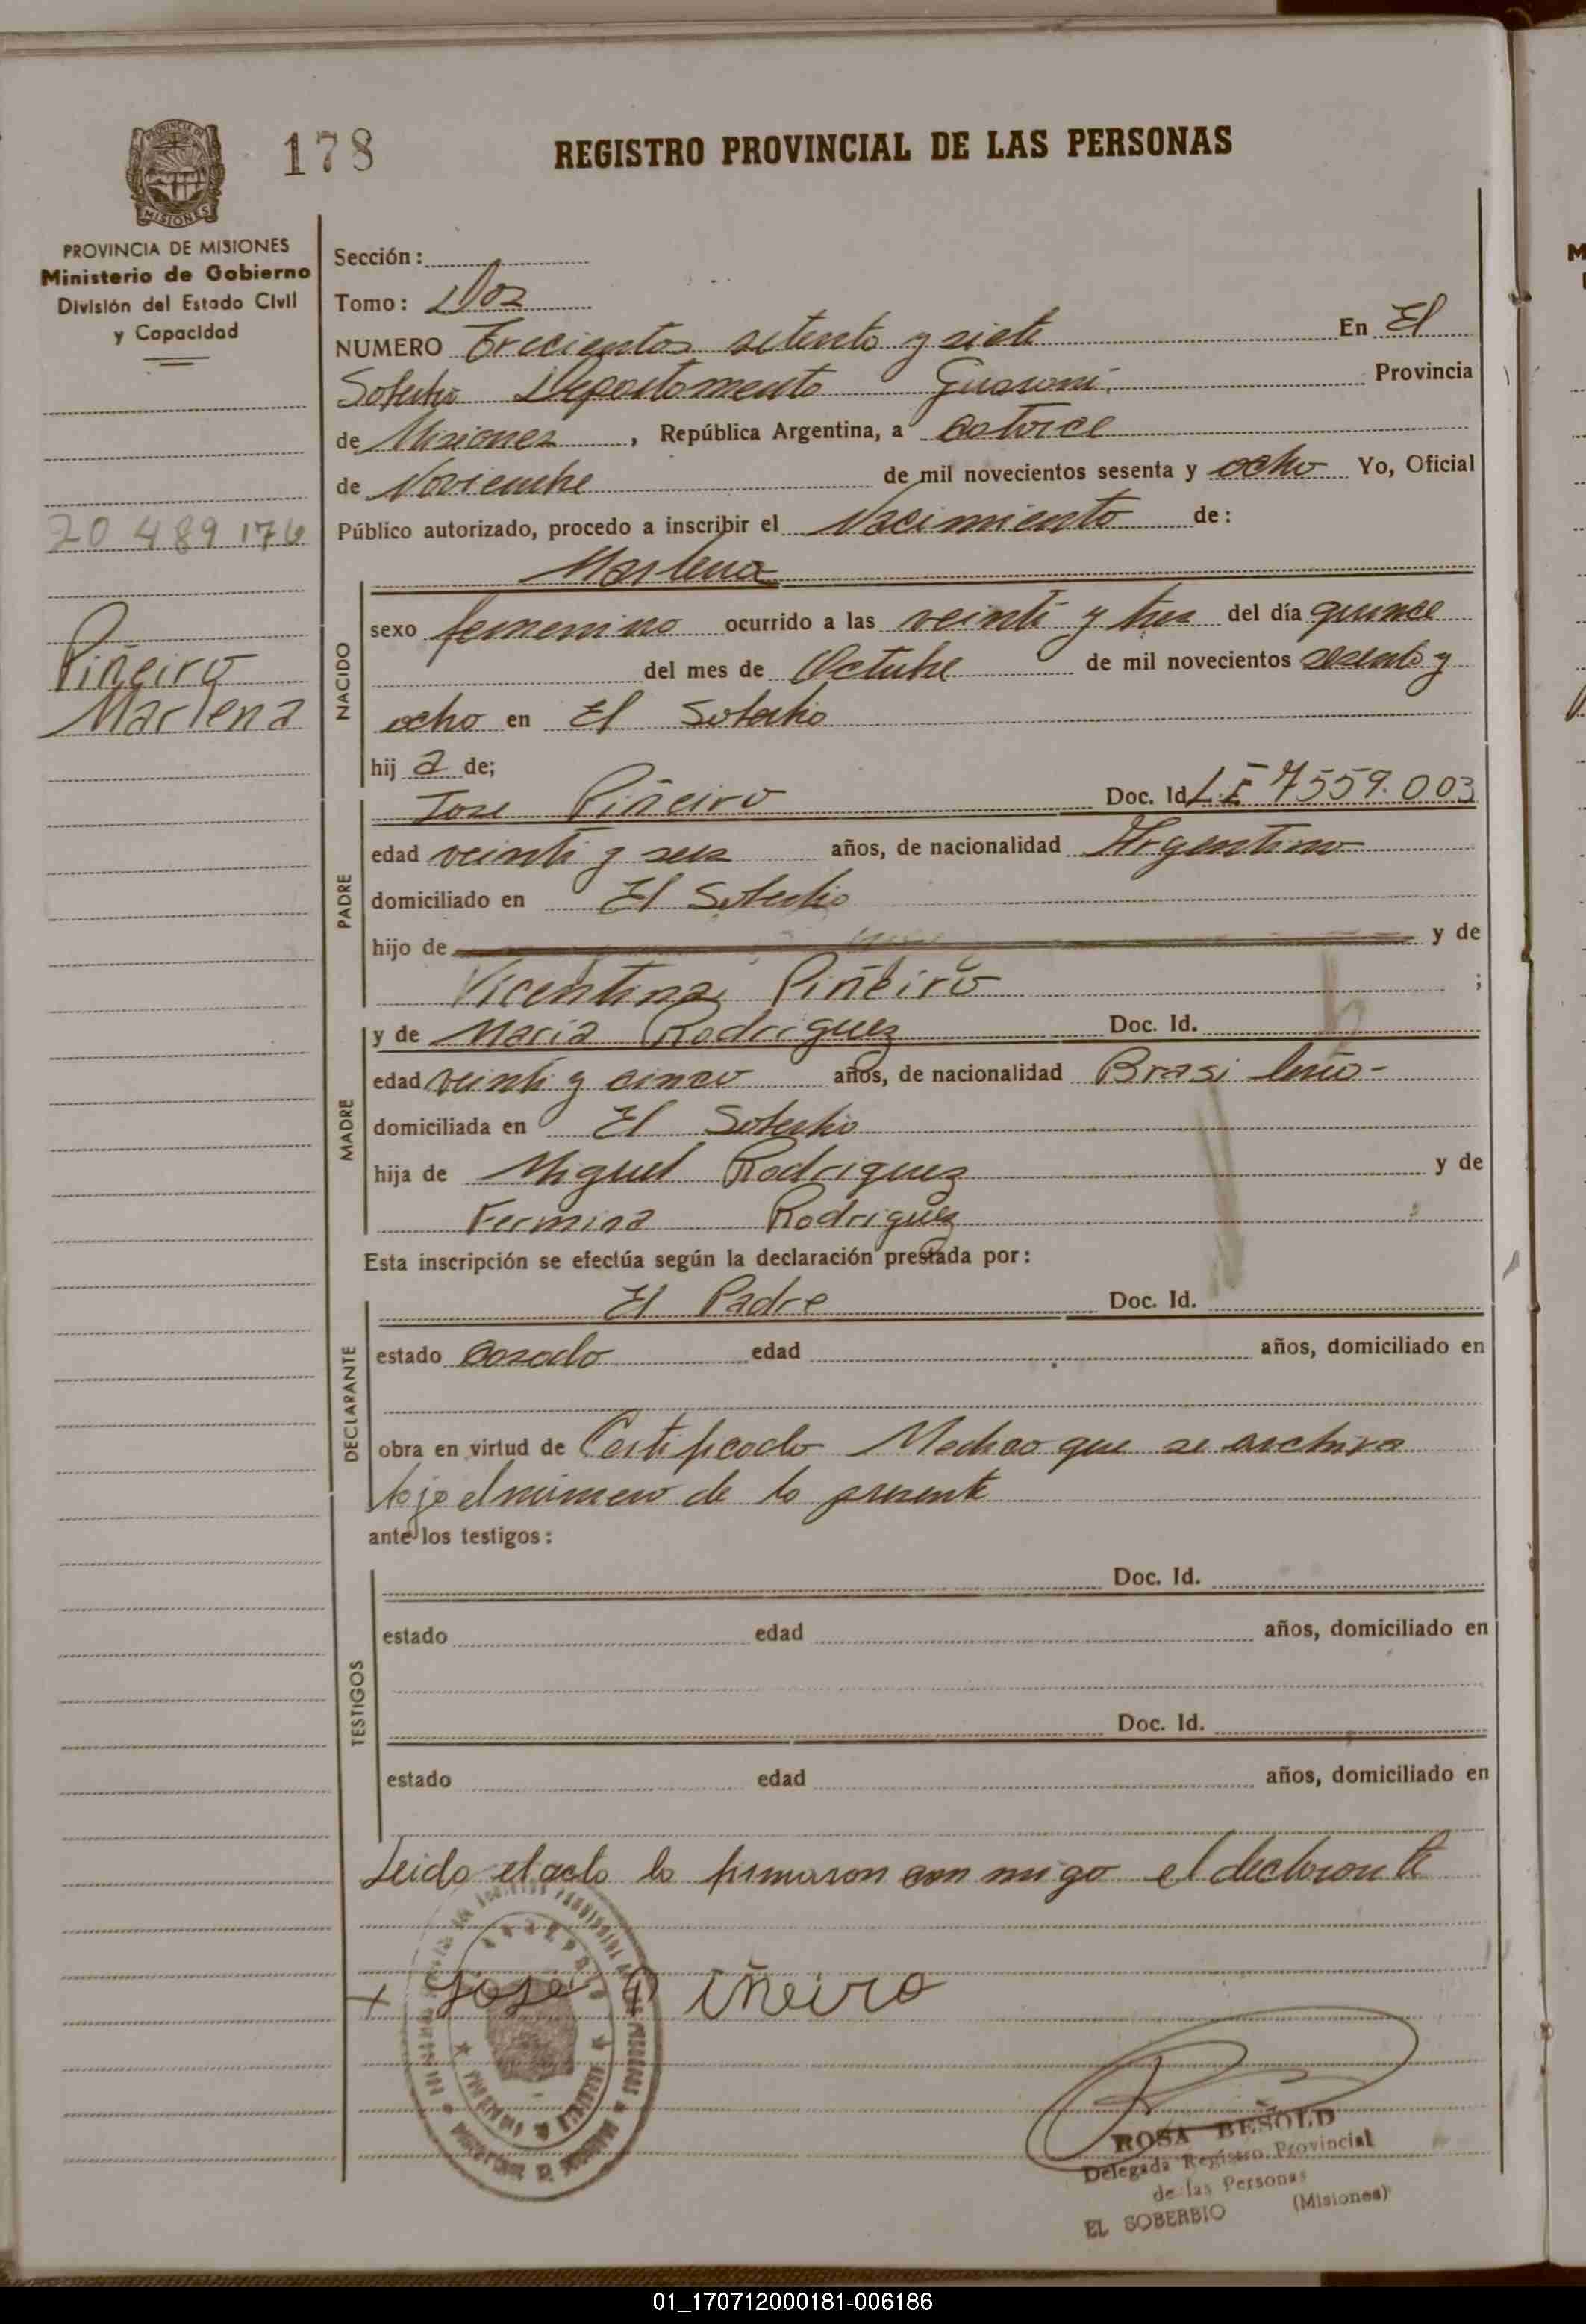 178
REGISTRO PROVINCIAL DE LAS PERSONAS
MISIONES
PROVINCIA DE MISIONES
Ministerio de Gobierno
División del Estado Civil
y Capacidad
20 489 176
Piñeiro
Marlena
Sección:
Tomo: Dos
NUMERO Trecientos setenta y siete En El
Soberbio Departamento Guarani. Provincia
de Misiones, República Argentina, a catorce
de Noviembre de mil novecientos sesenta y ocho Yo, Oficial
Público autorizado, procedo a inscribir el Nacimiento de:
Marlena
NACIDO
sexo femenino ocurrido a las veinti y tres del día quince
del mes de Octubre de mil novecientos sesenta y
ocho en El Soberbio
hij a de;
PADRE
Jose Piñeiro Doc. Id. L.E 7559.003
edad veinti y seis años, de nacionalidad Argentino
domiciliado en El Soberbio
hijo de y de
Vicentina Piñeiro ;
MADRE
y de Maria Rodriguez Doc. Id.
edad veinti y cinco años, de nacionalidad Brasileña-
domiciliada en El Soberbio
hija de Miguel Rodriguez y de
Fermina Rodriguez
Esta inscripción se efectúa según la declaración prestada por:
DECLARANTE
El Padre Doc. Id.
estado casado edad años, domiciliado en
obra en virtud de Certificado Medico que se archiva
bajo el numero de la presente
ante los testigos:
TESTIGOS
Doc. Id.
estado edad años, domiciliado en
Doc. Id.
estado edad años, domiciliado en
Leida el acta la firmaron con migo el declarante
+ José Piñeiro
ROSA BEÑOLD
Delegada Registro Provincial
de las Personas
EL SOBERBIO (Misiones)
01_170712000181-006186